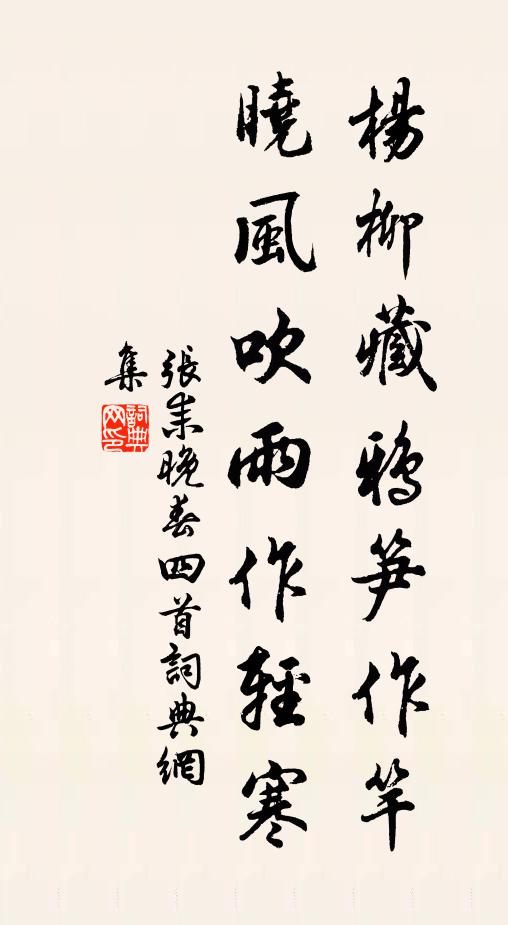 楊柳藏鴉笋作竿
曉風吹雨作輕寒
張耒晚春四首詞典網
集
詞典网印